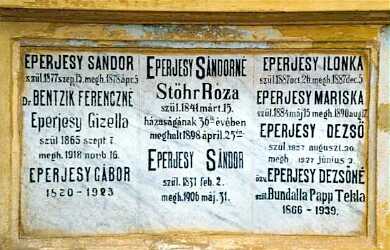 EPERJESY SÁNDOR
szül. 1877 szep. 15. megh. 1878 ápr. 5
Dr BENTZIK FERENCZNÉ
Eperjesy Gizella
szül. 1865 szept. 7.
megh. 1918 novb. 16.
EPERJESY GÁBOR
1820 - 1923
EPERJESY SÁNDORNÉ
Stöhr Róza
szül. 1841 márt. 15.
házaságának 36ik évében
meghalt 1898 ápril. 25én
EPERJESY SÁNDOR
szül. 1831 feb. 2.
megh. 1906 máj. 31.
EPERJESY ILONKA
szül. 1887 oct. 26. megh. 1887 dec. 5.
EPERJESY MARISKA
szül. 1884 máj. 15 megh. 1890 aug. 17.
EPERJESY DEZSŐ
szül. 1857 auguszt. 30.
megh. 1927 június 2.
özv. EPERJESY DEZSŐNÉ
szül. Bundalla Papp Tekla
1866 - 1939.